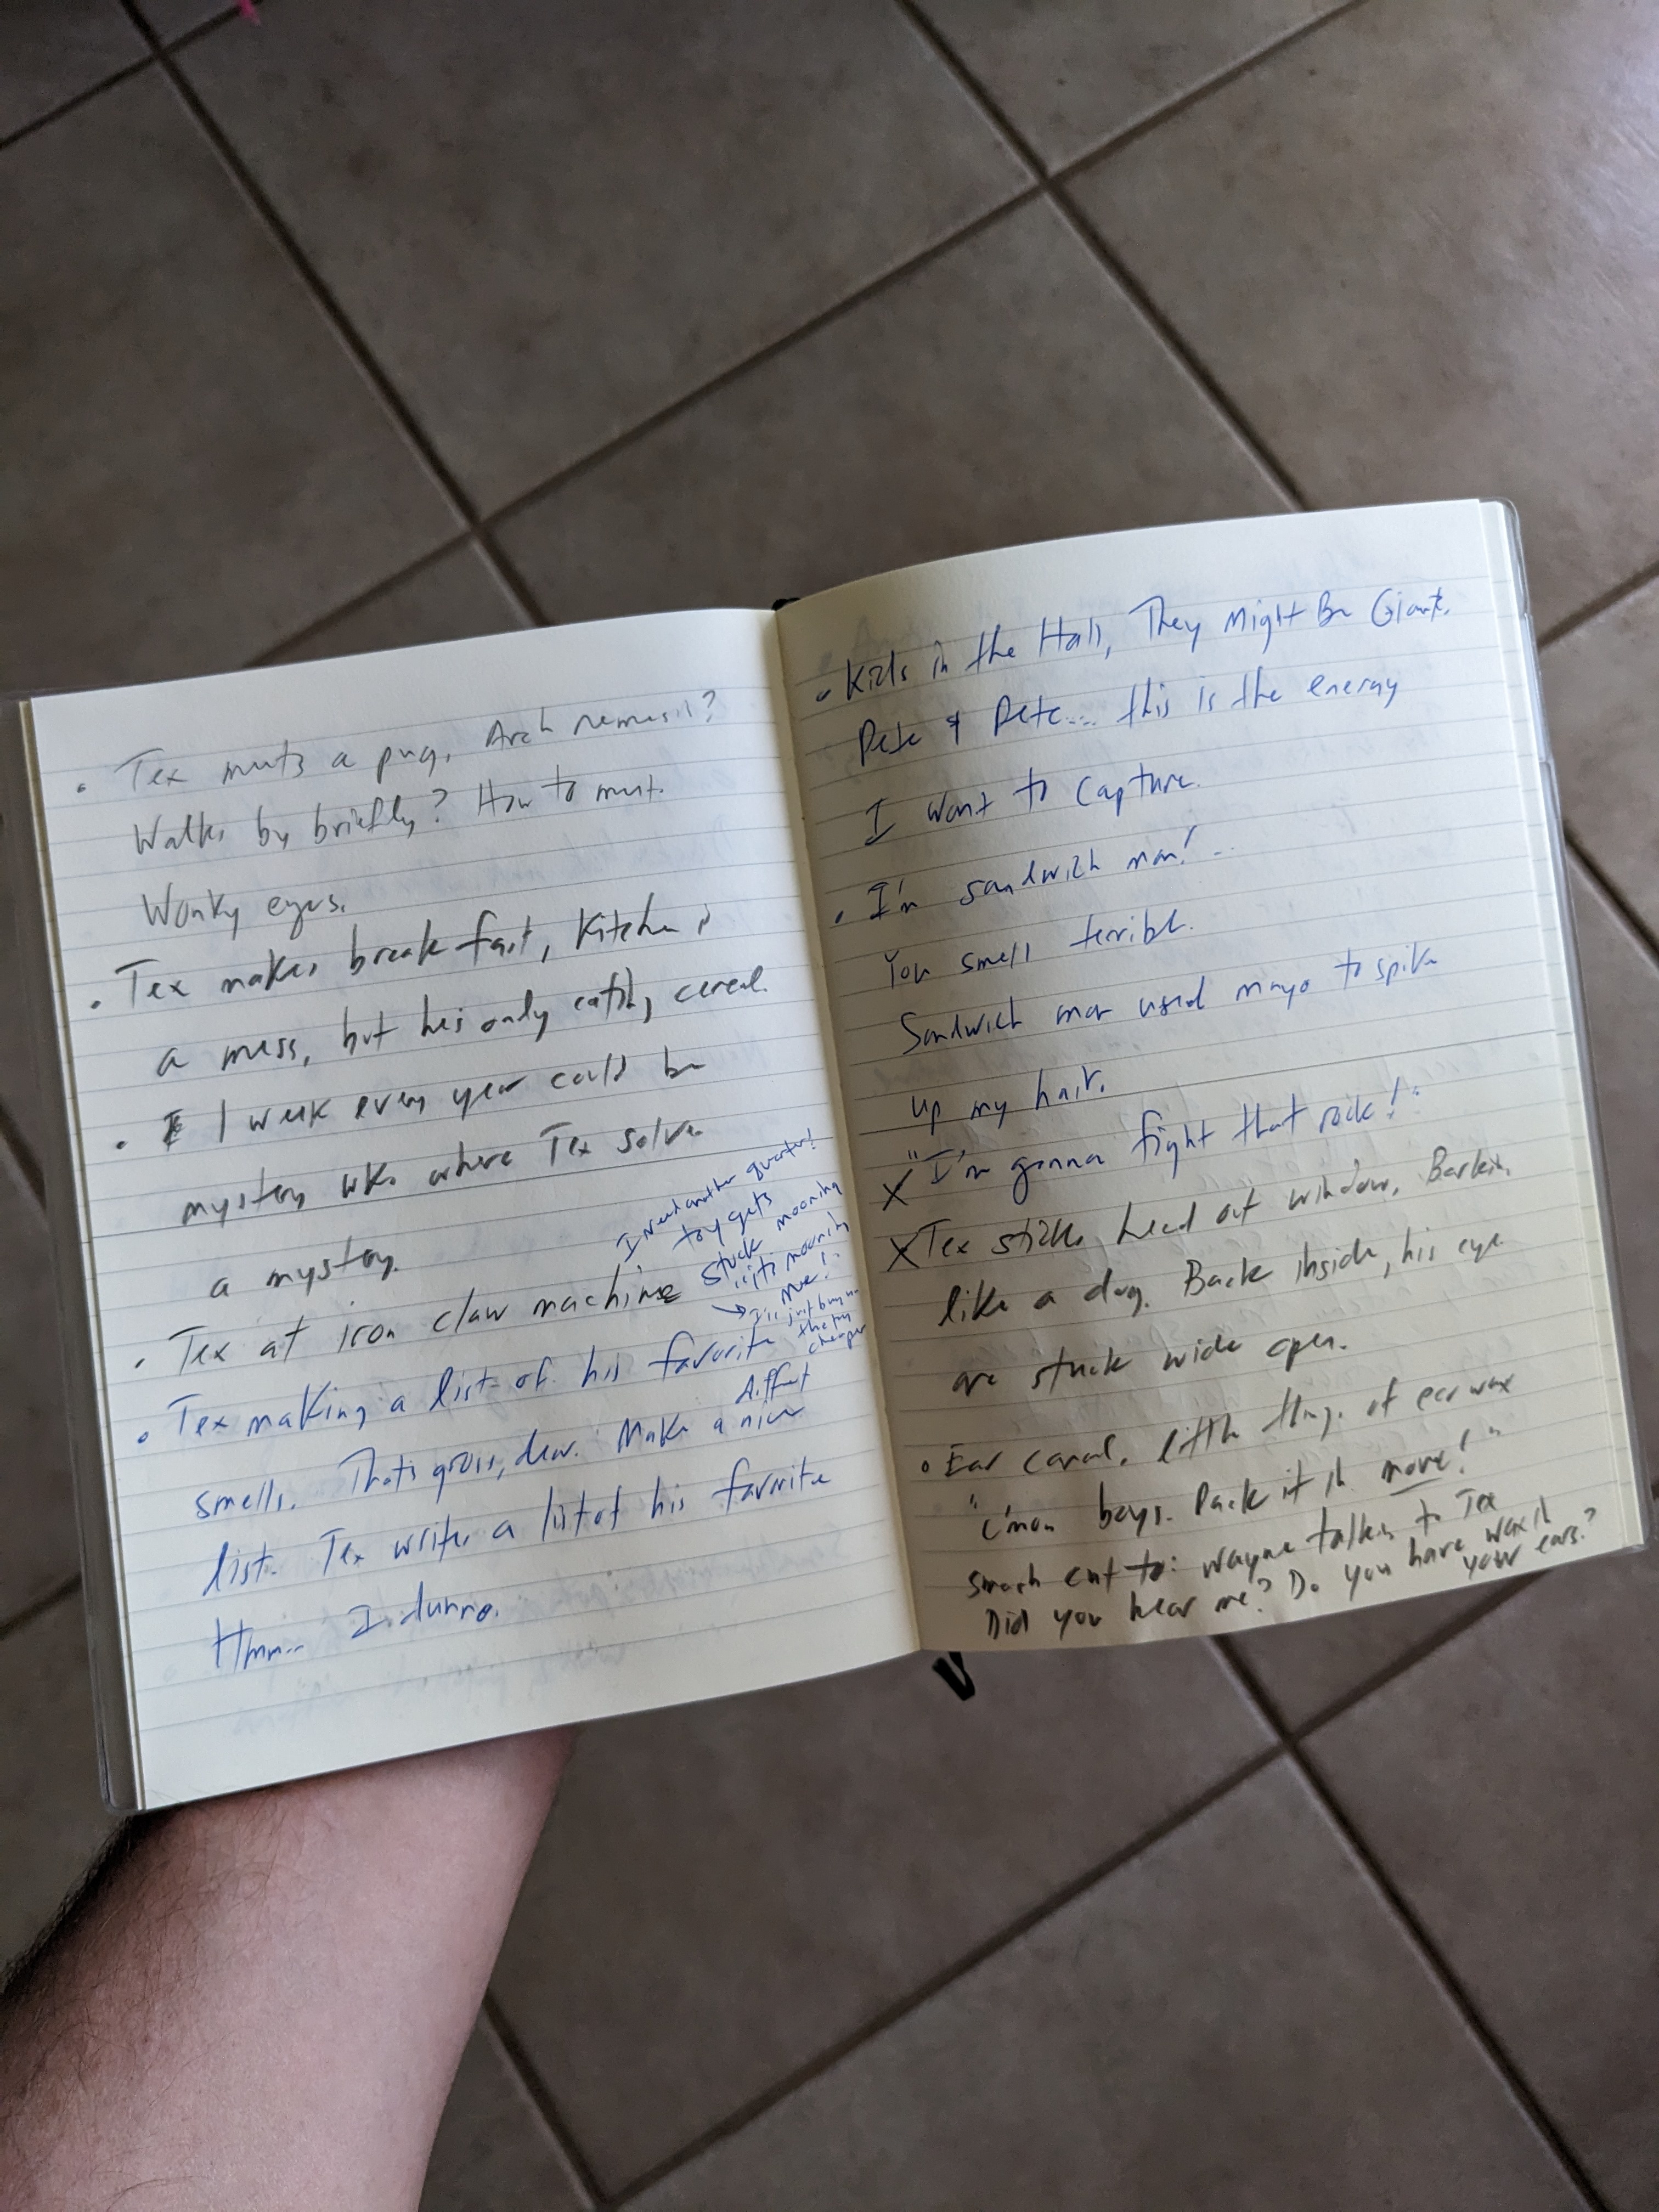 • Tex meets a pug. Arch nemesis?
Walks by briefly? How to meet.
Wonky eyes.
• Tex makes breakfast, Kitchen is
a mess, but he's only eating cereal.
• 1 week every year could be
mystery wk. where Tex solves
a mystery.
• Tex at iron claw machine
I need another quarter!
toy gets
stuck mooning
"it's mooning
me!"
→ I'll just buy
the toy
cheaper
• Tex making a list of his favorite
smells. That's gross, dear. Make a nice
different
list. Tex writes a list of his favorite
Hmm.. I dunno.
• Kids in the Hall, They Might Be Giants,
Pete & Pete.... this is the energy
I want to capture.
• I'm sandwich man! ..
You smell terrible.
Sandwich man used mayo to spike
up my hair.
X "I'm gonna fight that rock!"
X Tex sticks head out window. Barking
like a dog. Back inside, his eyes
are stuck wide open.
• Ear canal. little things of ear wax
"C'mon boys. Pack it in more!"
smash cut to: Wayne talking to Tex
Did you hear me? Do you have wax in
your ears?